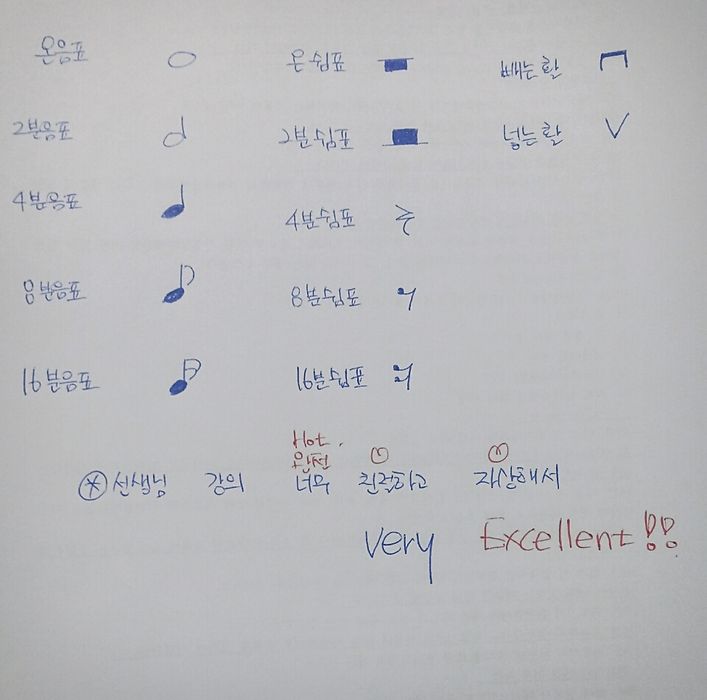 온음표 온쉼표 빼는활
2분음표 2분쉼표 넣는활
4분음표 4분쉼표
8분음표 8분쉼표
16분음표 16분쉼표
Hot.
완전
선생님 강의 너무 친절하고 자상해서
Very Excellent!!